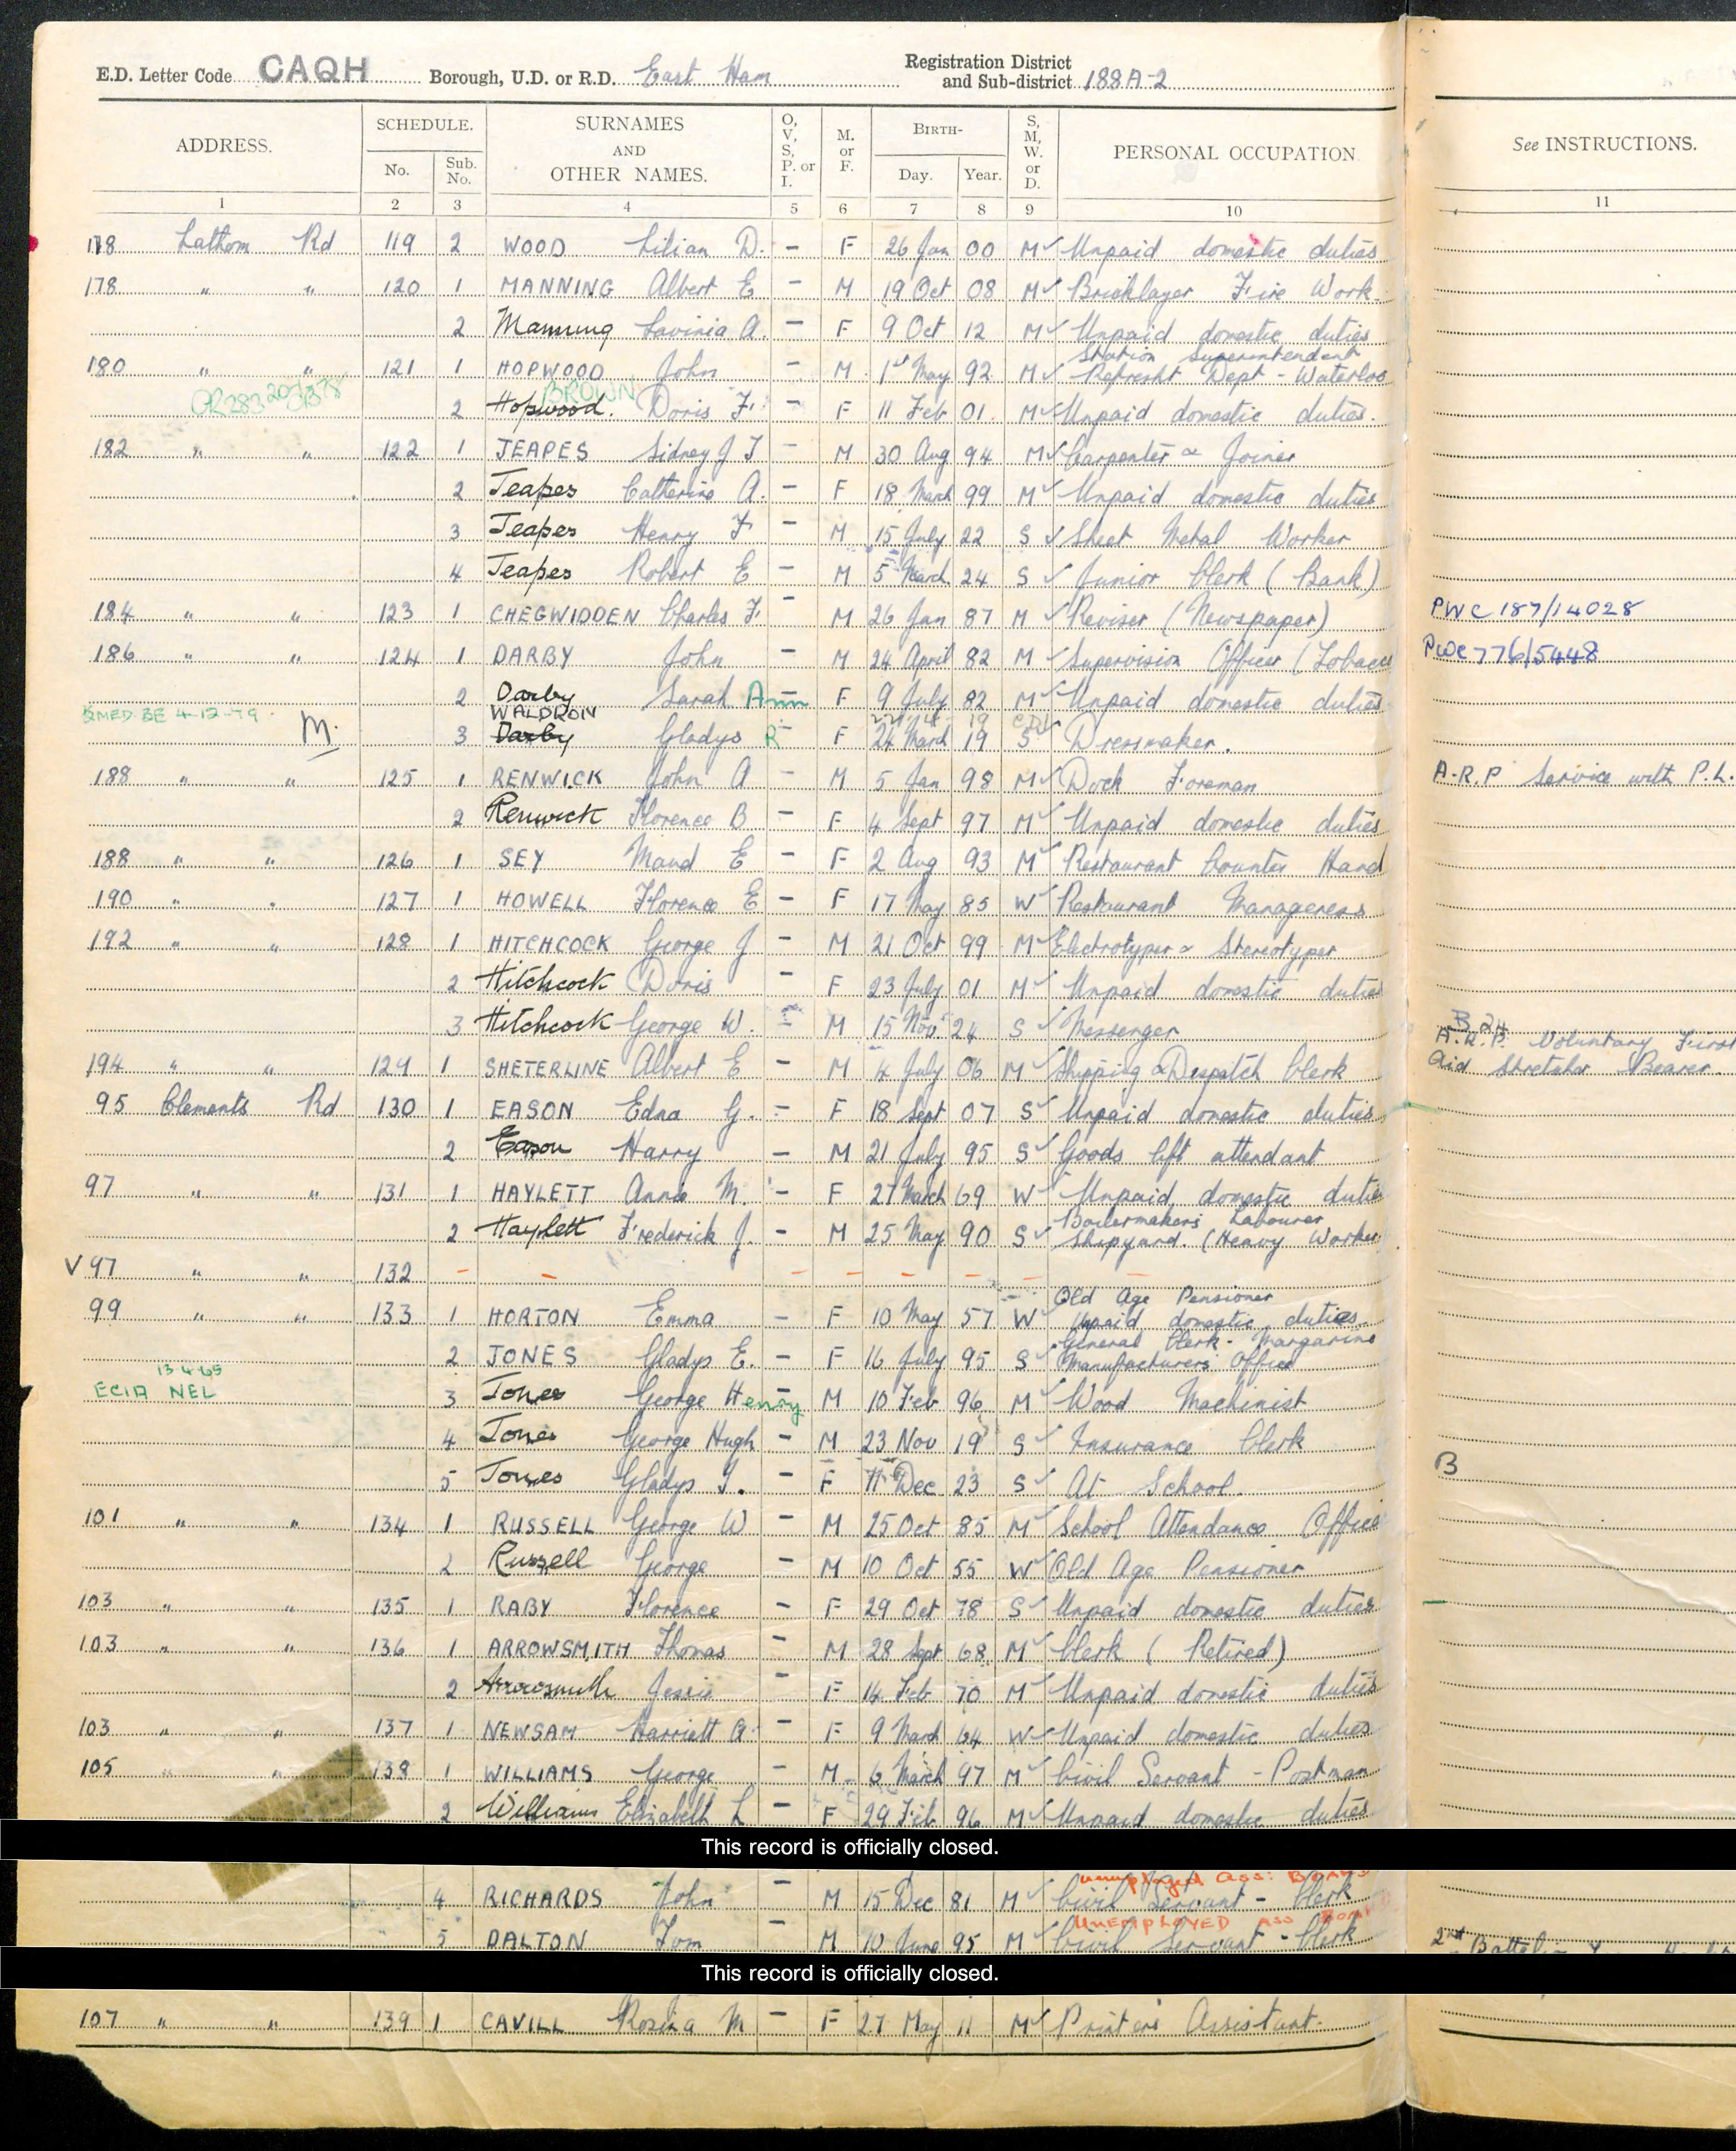 E.D. Letter Code CAQH Borough, U.D. or R.D. East Ham Registration District and Sub-district 188A-2
ADDRESS. SCHEDULE. No. Sub. No. SURNAMES AND OTHER NAMES. O, V, S, P. or I. M. or F. BIRTH- Day. Year. S, M, W. or D. PERSONAL OCCUPATION See INSTRUCTIONS.
1 2 3 4 5 6 7 8 9 10 11
178 Lathom Rd 119 2 WOOD Lilian D. - F 26 Jan 00 M ✓ Unpaid domestic duties
178 " " 120 1 MANNING Albert E - M 19 Oct 08 M ✓ Bricklayer Fire Work
2 Manning Lavinia A. - F 9 Oct 12 M ✓ Unpaid domestic duties
180 " " 121 1 HOPWOOD John - M 1st May 92 M ✓ Station Superintendent Refresht Dept - Waterloo
BROWN
2 Hopwood. Doris F. - F 11 Feb 01 M ✓ Unpaid domestic duties.
182 " " 122 1 JEAPES Sidney J T - M 30 Aug 94 M ✓ Carpenter & Joiner
2 Jeapes Catherine A. - F 18 March 99 M ✓ Unpaid domestic duties
3 Jeapes Henry F - M 15 July 22 S ✓ Sheet Metal Worker
4 Jeapes Robert E - M 5 March 24 S ✓ Junior Clerk (Bank)
184 " " 123 1 CHEGWIDDEN Charles F. - M 26 Jan 87 M ✓ Reviser (Newspaper) PWC 187/14028
186 " " 124 1 DARBY John - M 24 April 82 M ✓ Supervision Officer (Tobacc PWC 776/5448
2 Darby Sarah Ann - F 9 July 82 M ✓ Unpaid domestic duties
4-12-79 M. WALDRON
3 Darby Gladys R - F 24 March 19 S Dressmaker.
188 " " 125 1 RENWICK John A - M 5 Jan 98 M ✓ Dock Foreman A.R.P Service with P.L.
2 Renwick Florence B - F 4 Sept 97 M ✓ Unpaid domestic duties
188 " " 126 1 SEY Maud E - F 2 Aug 93 M ✓ Restaurant Counter Hand
190 " " 127 1 HOWELL Florence E - F 17 May 85 W ✓ Restaurant Manageress
192 " " 128 1 HITCHCOCK George J - M 21 Oct 99 M ✓ Electrotyper & Stereotyper
2 Hitchcock Doris - F 23 July 01 M ✓ Unpaid domestic duties
3 Hitchcock George W. - M 15 Nov 24 S ✓ Messenger B 24
194 " " 129 1 SHETERLINE Albert E - M 4 July 06 M ✓ Shipping & Despatch Clerk A.R.P. Voluntary First Aid Stretcher Bearer.
95 Clements Rd 130 1 EASON Edna G. - F 18 Sept 07 S ✓ Unpaid domestic duties
2 Eason Harry - M 21 July 95 S ✓ Goods lift attendant
97 " " 131 1 HAYLETT Annie M. - F 27 March 69 W ✓ Unpaid domestic duties
2 Haylett Frederick J. - M 25 May 90 S ✓ Boilermakers' Labourer Shipyard. (Heavy Worker
V 97 " " 132 - - - - - - - -
99 " " 133 1 HORTON Emma - F 10 May 57 W ✓ Old Age Pensioner Unpaid domestic duties
2 JONES Gladys E. - F 16 July 95 S ✓ General Clerk - Margarine Manufacturers Office
13 4 65
ECIA NEL 3 Jones George Henry - M 10 Feb 96 M ✓ Wood Machinist
4 Jones George Hugh - M 23 Nov 19 S ✓ Insurance Clerk
5 Jones Gladys I. - F 11 Dec 23 S ✓ At School. B
101 " " 134 1 RUSSELL George W - M 25 Oct 85 M ✓ School Attendance Office
2 Russell George - M 10 Oct 55 W ✓ Old Age Pensioner
103 " " 135 1 RABY Florence - F 29 Oct 78 S ✓ Unpaid domestic duties
103 " " 136 1 ARROWSMITH Thomas - M 28 Sept 68 M ✓ Clerk (Retired)
2 Arrowsmith Jessie - F 14 Feb 70 M ✓ Unpaid domestic duties
103 " " 137 1 NEWSAM Harriett A. - F 9 March 64 W ✓ Unpaid domestic duties
105 " " 138 1 WILLIAMS George - M 6 March 97 M ✓ Civil Servant - Postman
2 Williams Elizabeth L - F 29 Feb 96 M ✓ Unpaid domestic duties
This record is officially closed.
Unemployed Ass: Board
4 RICHARDS John - M 15 Dec 81 M ✓ Civil Servant - Clerk
UNEMPLOYED ASS
5 DALTON Tom - M 10 June 95 M ✓ Civil Servant - Clerk 2nd
This record is officially closed.
107 " " 139 1 CAVILL Rosina M - F 27 May 11 M ✓ Printers Assistant.